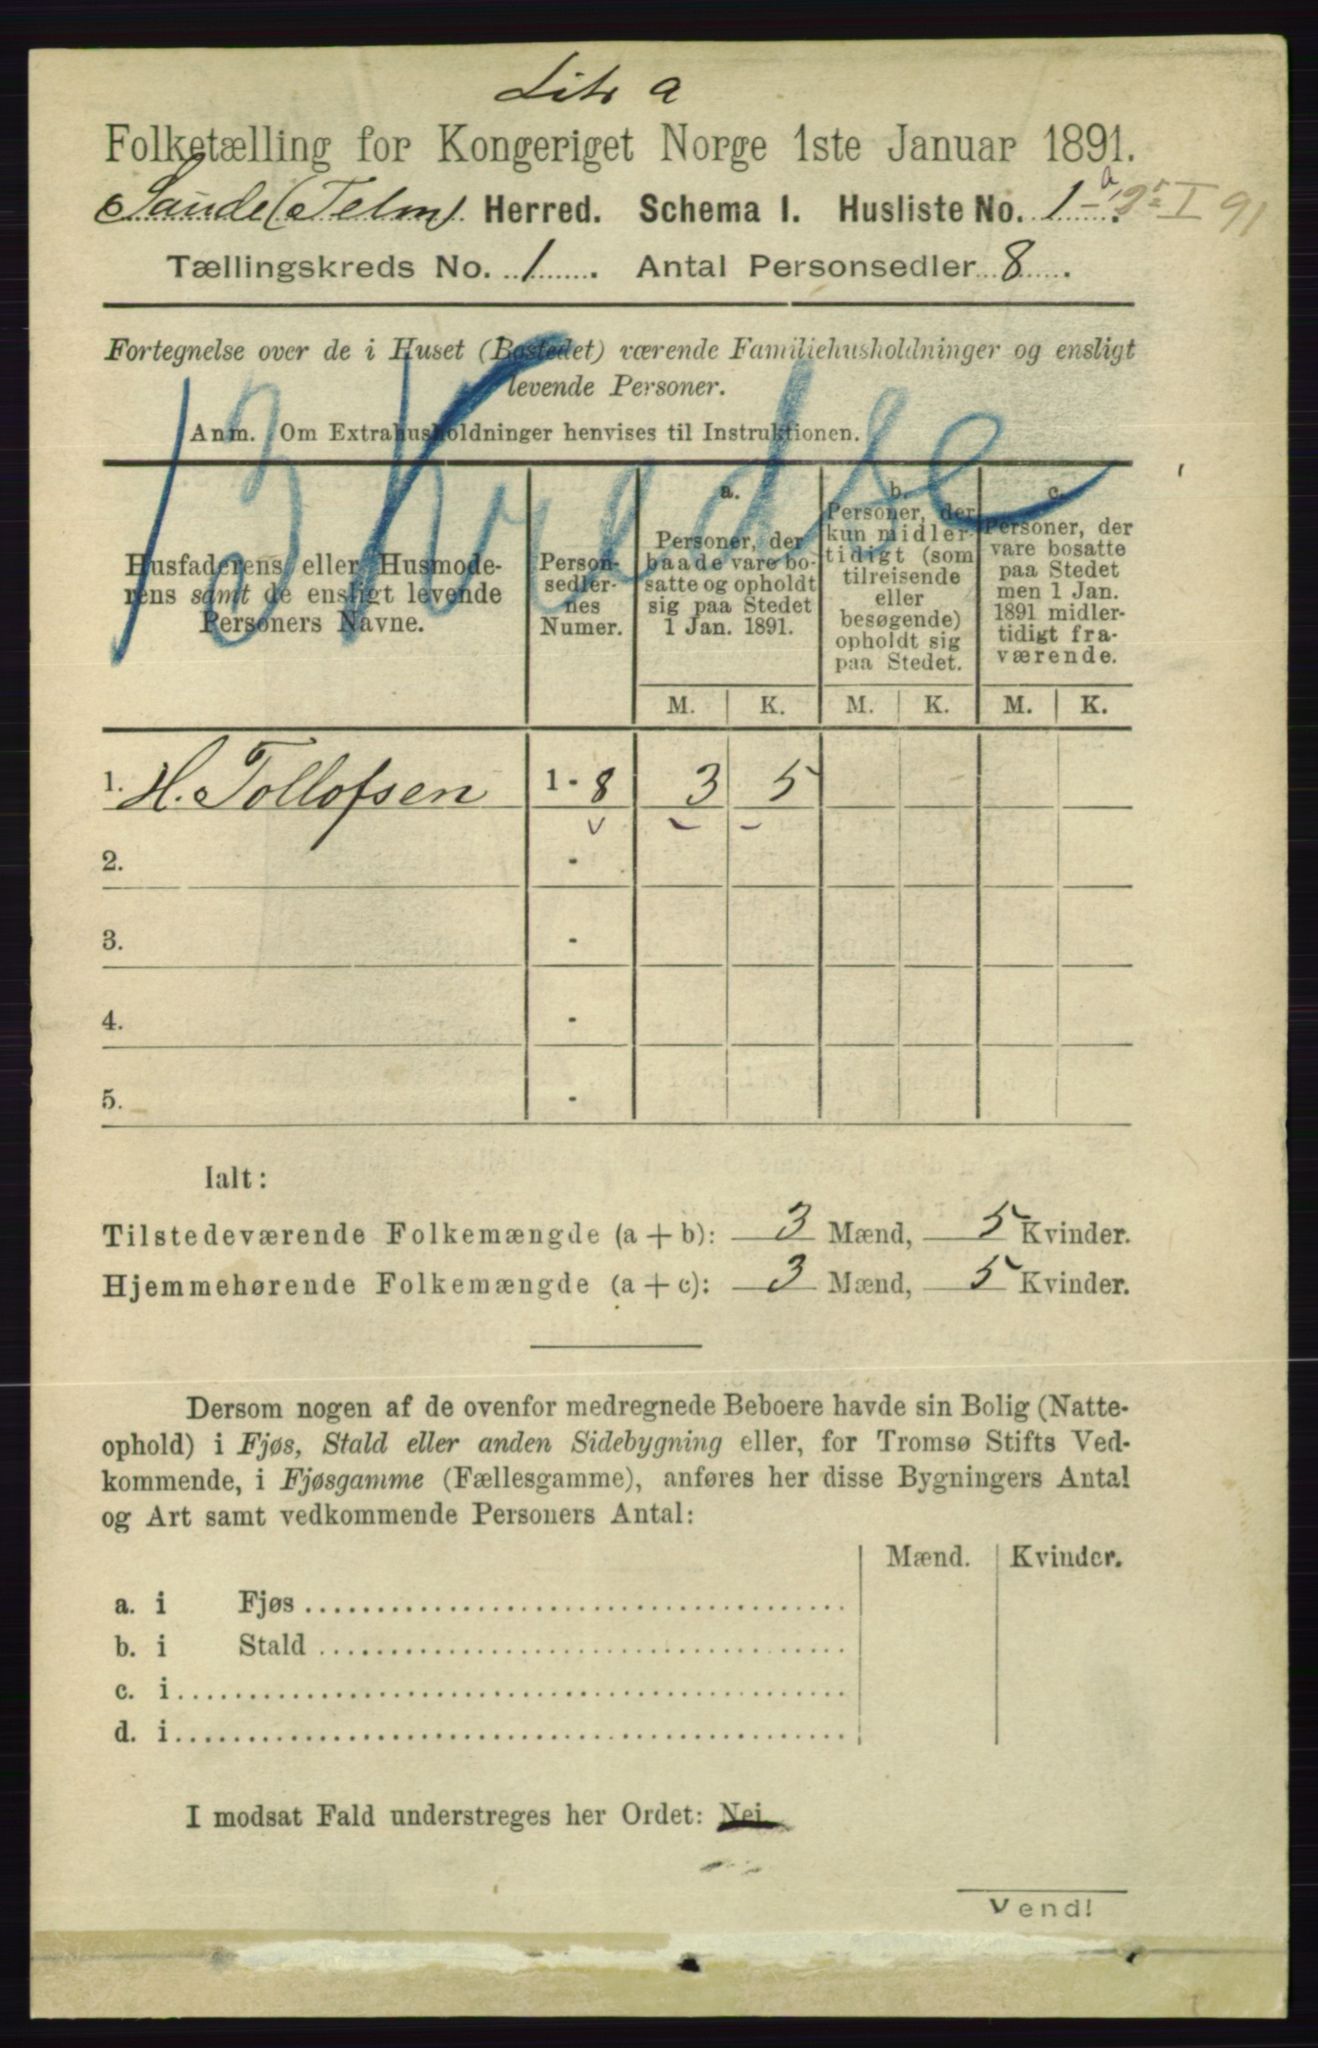 Litr a
Folketælling for Kongeriget Norge 1ste Januar 1891.
Saude (Telm). Herred. Schema I. Husliste No. 1 a
Tællingskreds No. 1. Antal Personsedler 8.
Fortegnelse over de i Huset (Bostedet) værende Familiehusholdninger og ensligt
levende Personer.
Anm. Om Extrahusholdninger henvises til Instruktionen.
13 Kredse
Husfaderens eller Husmode-
rens samt de ensligt levende
Personers Navne.
Person-
sedler-
nes
Numer.
a.
Personer, der
baade vare bo-
satte og opholdt
sig paa Stedet
1 Jan. 1891.
b.
Personer, der
kun midler-
tidigt (som
tilreisende
eller
besøgende)
opholdt sig
paa Stedet.
c.
Personer, der
vare bosatte
paa Stedet
men 1 Jan.
1891 midler-
tidigt fra-
værende.
M. K. M. K. M. K.
1. H. Tollofsen 1 - 8 3 5
2. -
3. -
4. -
5. -
Ialt:
Tilstedeværende Folkemængde (a + b): 3 Mænd, 5 Kvinder.
Hjemmehørende Folkemængde (a + c): 3 Mænd, 5 Kvinder.
Dersom nogen af de ovenfor medregnede Beboere havde sin Bolig (Natte-
ophold) i Fjøs, Stald eller anden Sidebygning eller, for Tromsø Stifts Ved-
kommende, i Fjøsgamme (Fællesgamme), anføres her disse Bygningers Antal
og Art samt vedkommende Personers Antal:
Mænd. Kvinder.
a. i Fjøs
b. i Stald
c. i
d. i
I modsat Fald understreges her Ordet: Nei.
Vend!